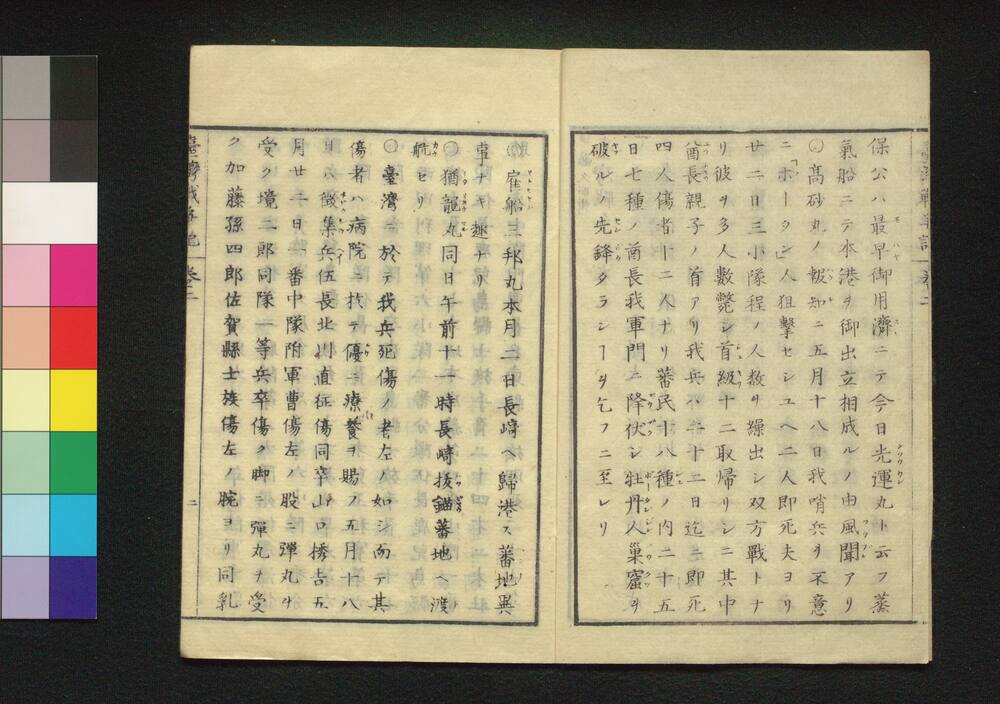 保公ハ最早御用濟ニテ今日光運丸ト云フ蒸
氣船ニテ本港ヲ御出立相成ルノ由風聞アリ
○高砂丸ノ報知ニ五月十八日我哨兵ヲ不意
ニ「ホータン」人狙擊セシユヘ二人即死夫ヨリ
廿二日三小隊程ノ人数ヲ繰出シ双方戰トナ
リ彼ヲ多人數斃シ首級十二取帰リシニ其中
酋長親子ノ首アリ我兵ハ二十二日迄ニ即死
四人傷者十二人ナリ蕃民十八種ノ内二十五
日七種ノ酋長我軍門ニ降伏シ牡丹人巢窟ヲ
破ルノ先鋒タランヿヲ乞フニ至レリ
○雇船三邦丸本月二日長崎ヘ歸港ス蕃地異
事ナキ趣ナリ
○猶龍丸同日午前十一時長崎抜錨蕃地ヘ渡
航セリ
○臺灣ニ於テ我兵死傷ノ者左ノ如シ而テ其
傷者ハ病院ニ於テ優ニ療養ヲ賜フ五月十八
日徵集兵伍長北川直征傷同卒山口
月廿二日一番中隊附軍曹傷左ノ股ニ彈丸ヲ
受ク境二郎同隊一等兵卒傷ク脚ニ彈丸ヲ受
ク加藤孫四郎佐賀縣士族傷左ノ腕ヨリ同乳
卷二
二